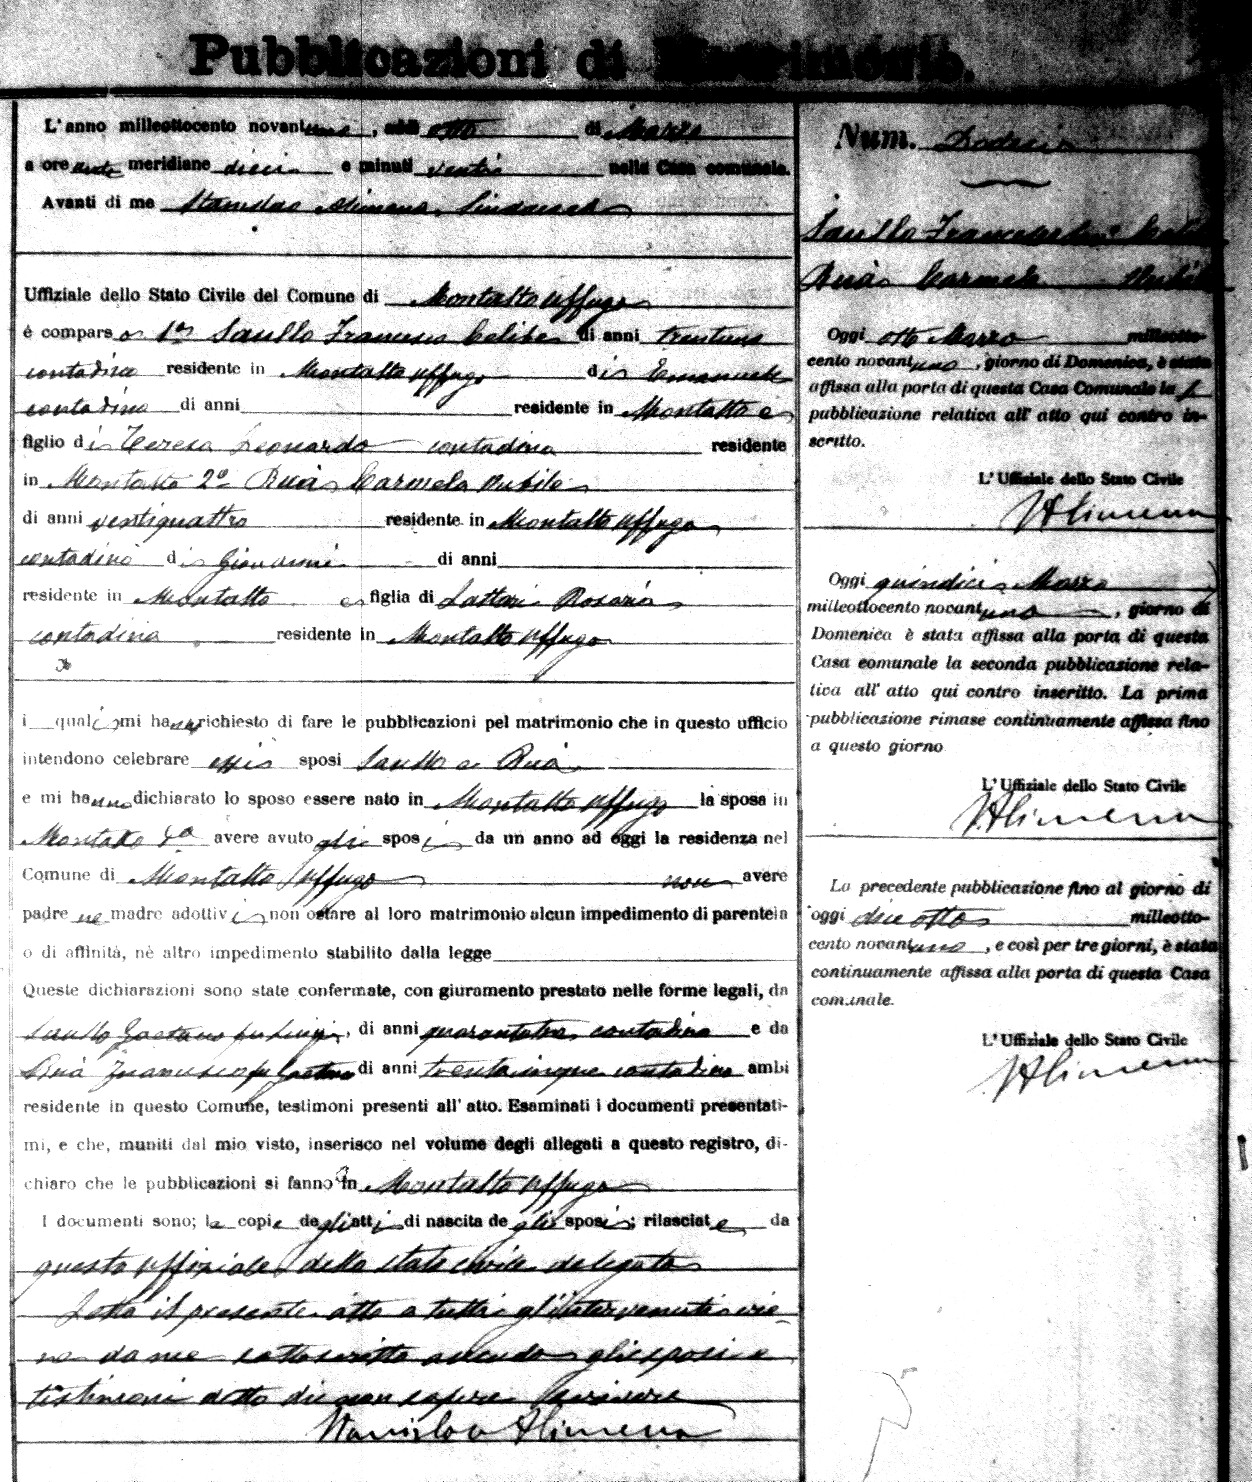 Pubblicazioni di Matrimonio.
L'anno milleottocento novantuno, addì otto di Marzo
a ore ante meridiane dieci e minuti venti nella Casa comunale.
Avanti di me Stanislao Alimena Sindaco
Uffiziale dello Stato Civile del Comune di Montalto Uffugo
è comparso 1º Saullo Francesco Celibe di anni trentuno
contadino residente in Montalto Uffugo di Emanuele
contadino di anni residente in Montalto e
figlio di Teresa Leonardo contadina residente
in Montalto 2º Ruà Carmela Nubile
di anni ventiquattro residente in Montalto Uffugo
contadina di Giovanni di anni
residente in Montalto e figlia di Lattari Rosaria
contadina residente in Montalto Uffugo
i quali mi hanno richiesto di fare le pubblicazioni pel matrimonio che in questo ufficio
intendono celebrare essi sposi Saullo e Ruà
e mi hanno dichiarato lo sposo essere nato in Montalto Uffugo la sposa in
Montalto avere avuto gli sposi da un anno ad oggi la residenza nel
Comune di Montalto Uffugo non avere
padre ne madre adottivi non ostare al loro matrimonio alcun impedimento di parentela
o di affinità, nè altro impedimento stabilito dalla legge
Queste dichiarazioni sono state confermate, con giuramento prestato nelle forme legali, da
Saullo Gaetano fu Luigi, di anni quarantatre contadino e da
Ruà Francesco fu Gaetano di anni trentacinque contadino ambi
residente in questo Comune, testimoni presenti all'atto. Esaminati i documenti presentati-
mi, e che, muniti dal mio visto, inserisco nel volume degli allegati a questo registro, di-
chiaro che le pubblicazioni si fanno in Montalto Uffugo
I documenti sono; le copie degli atti di nascita degli sposi; rilasciate da
questo Uffiziale dello stato civile delegato
Letto il presente atto a tutti gl'intervenuti vie-
ne da me sottoscritto avendo gli sposi e
testimoni detto di non sapere scrivere
Stanislao Alimena
Num. Dodeci
Saullo Francesco Celibe
Ruà Carmela Nubile
Oggi otto Marzo milleotto-
cento novantuno, giorno di Domenica, è stata
affissa alla porta di questa Casa Comunale la
pubblicazione relativa all'atto qui contro in-
scritto.
L'Uffiziale dello Stato Civile
SAlimena
Oggi quindici Marzo
milleottocento novantuno, giorno di
Domenica è stata affissa alla porta di questa
Casa comunale la seconda pubblicazione rela-
tiva all'atto qui contro inscritto. La prima
pubblicazione rimase continuamente affissa fino
a questo giorno
L'Uffiziale dello Stato Civile
SAlimena
La precedente pubblicazione fino al giorno di
oggi dieciotto milleotto-
cento novantuno, e così per tre giorni, è stata
continuamente affissa alla porta di questa Casa
comunale.
L'Uffiziale dello Stato Civile
SAlimena